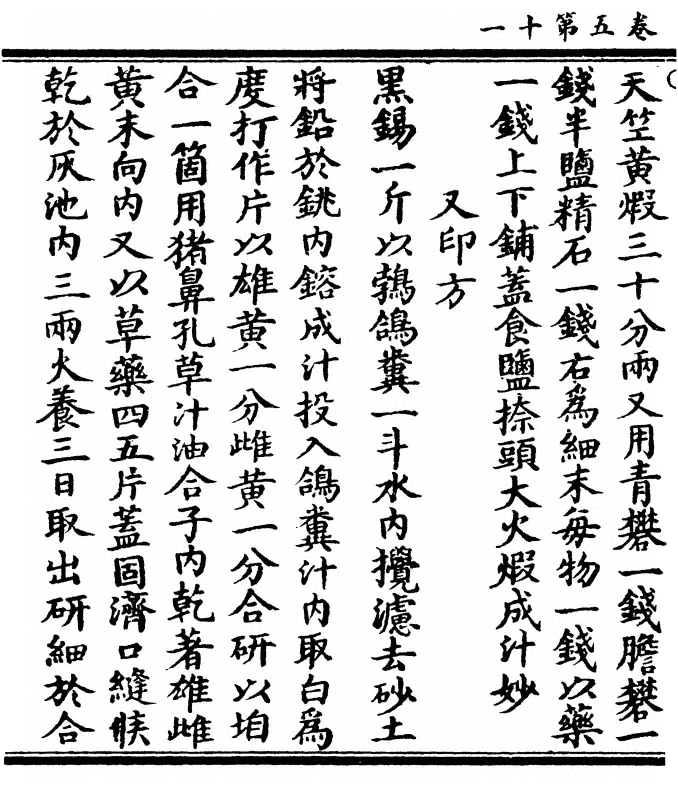 卷五第十一
天竺黃煆三十分兩又用青礬一錢膽礬一
錢半鹽精石一錢右為細末每物一錢以藥
一錢上下鋪蓋食鹽捺頭大火煆成汁妙
又印方
黑錫一斤以鵓鴿糞一斗水內攪濾去砂土
將鉛於銚內鎔成汁投入鴿糞汁內取白為
度打作片以雄黃一分雌黃一分合研以坩
合一箇用猪鼻孔草汁油合子內乾著雄雌
黃末向內又以草藥四五片蓋固濟口縫候
乾於灰池內三兩火養三日取出研細於合